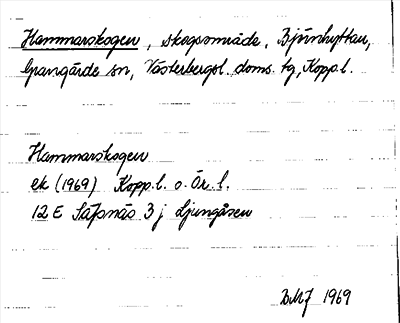 Hammarskogen, skogsområde, Björnhyttan,
Grangärde sn, Västerbergsl. doms. tg, Kopp.l.
Hammarskogen
ek (1969) Kopp.l. o. Ör. l.
12 E Säfsnäs 3 j Ljungåsen
BMJ 1969